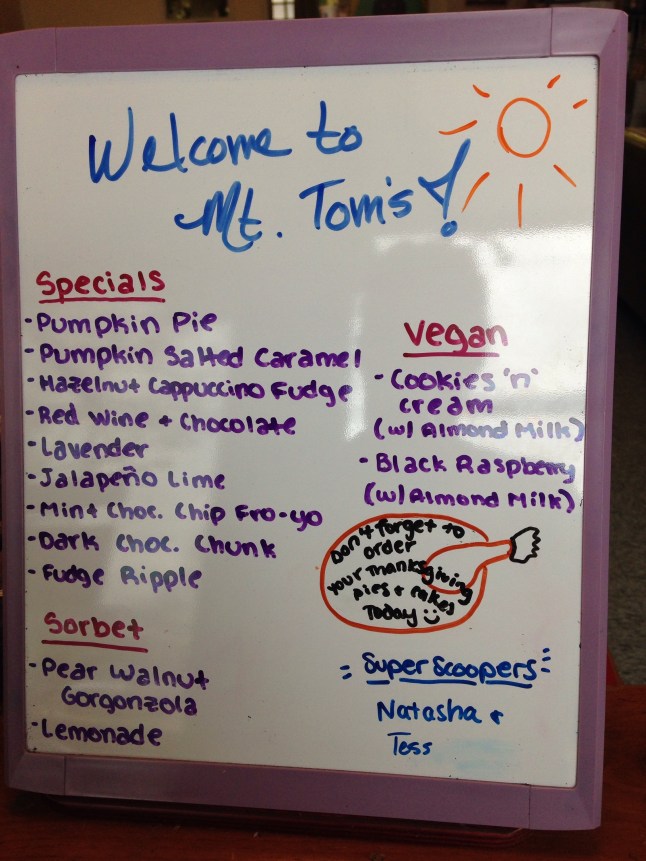 Welcome to
Mt. Tom's!
Specials
-Pumpkin Pie
-Pumpkin Salted Caramel
-Hazelnut Cappuccino Fudge
-Red Wine + Chocolate
-Lavender
-Jalapeño Lime
-Mint Choc. Chip Fro-yo
-Dark Choc. Chunk
-Fudge Ripple
Sorbet
-Pear Walnut
Gorgonzola
-Lemonade
Vegan
-Cookies 'n'
cream
(w/ Almond Milk)
-Black Raspberry
(w/ Almond Milk)
Don't forget to
order
your Thanksgiving
pies + cakes
Today
Super Scoopers
Natasha +
Tess